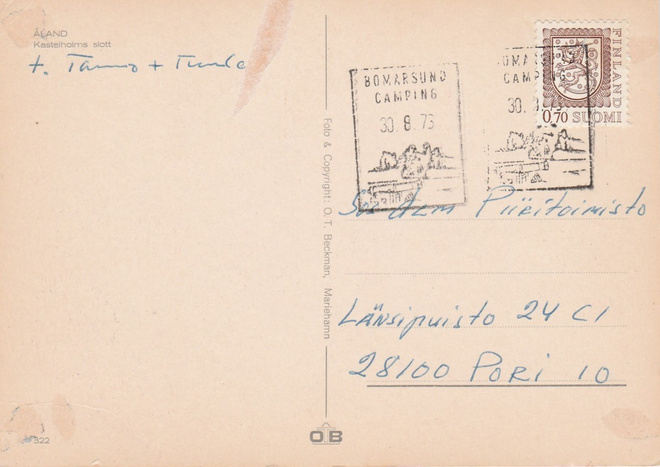 ÅLAND
Kastelholms slott
t. Tarmo + Tuula
BOMARSUND
CAMPING
30.8.75
CAMP
30.
FINLAND
0,70 SUOMI
Foto & Copyright: O. T. Beckman, Mariehamn
Piiritoimisto
Länsipuisto 24 C1
28100 PORI 10
522
OB